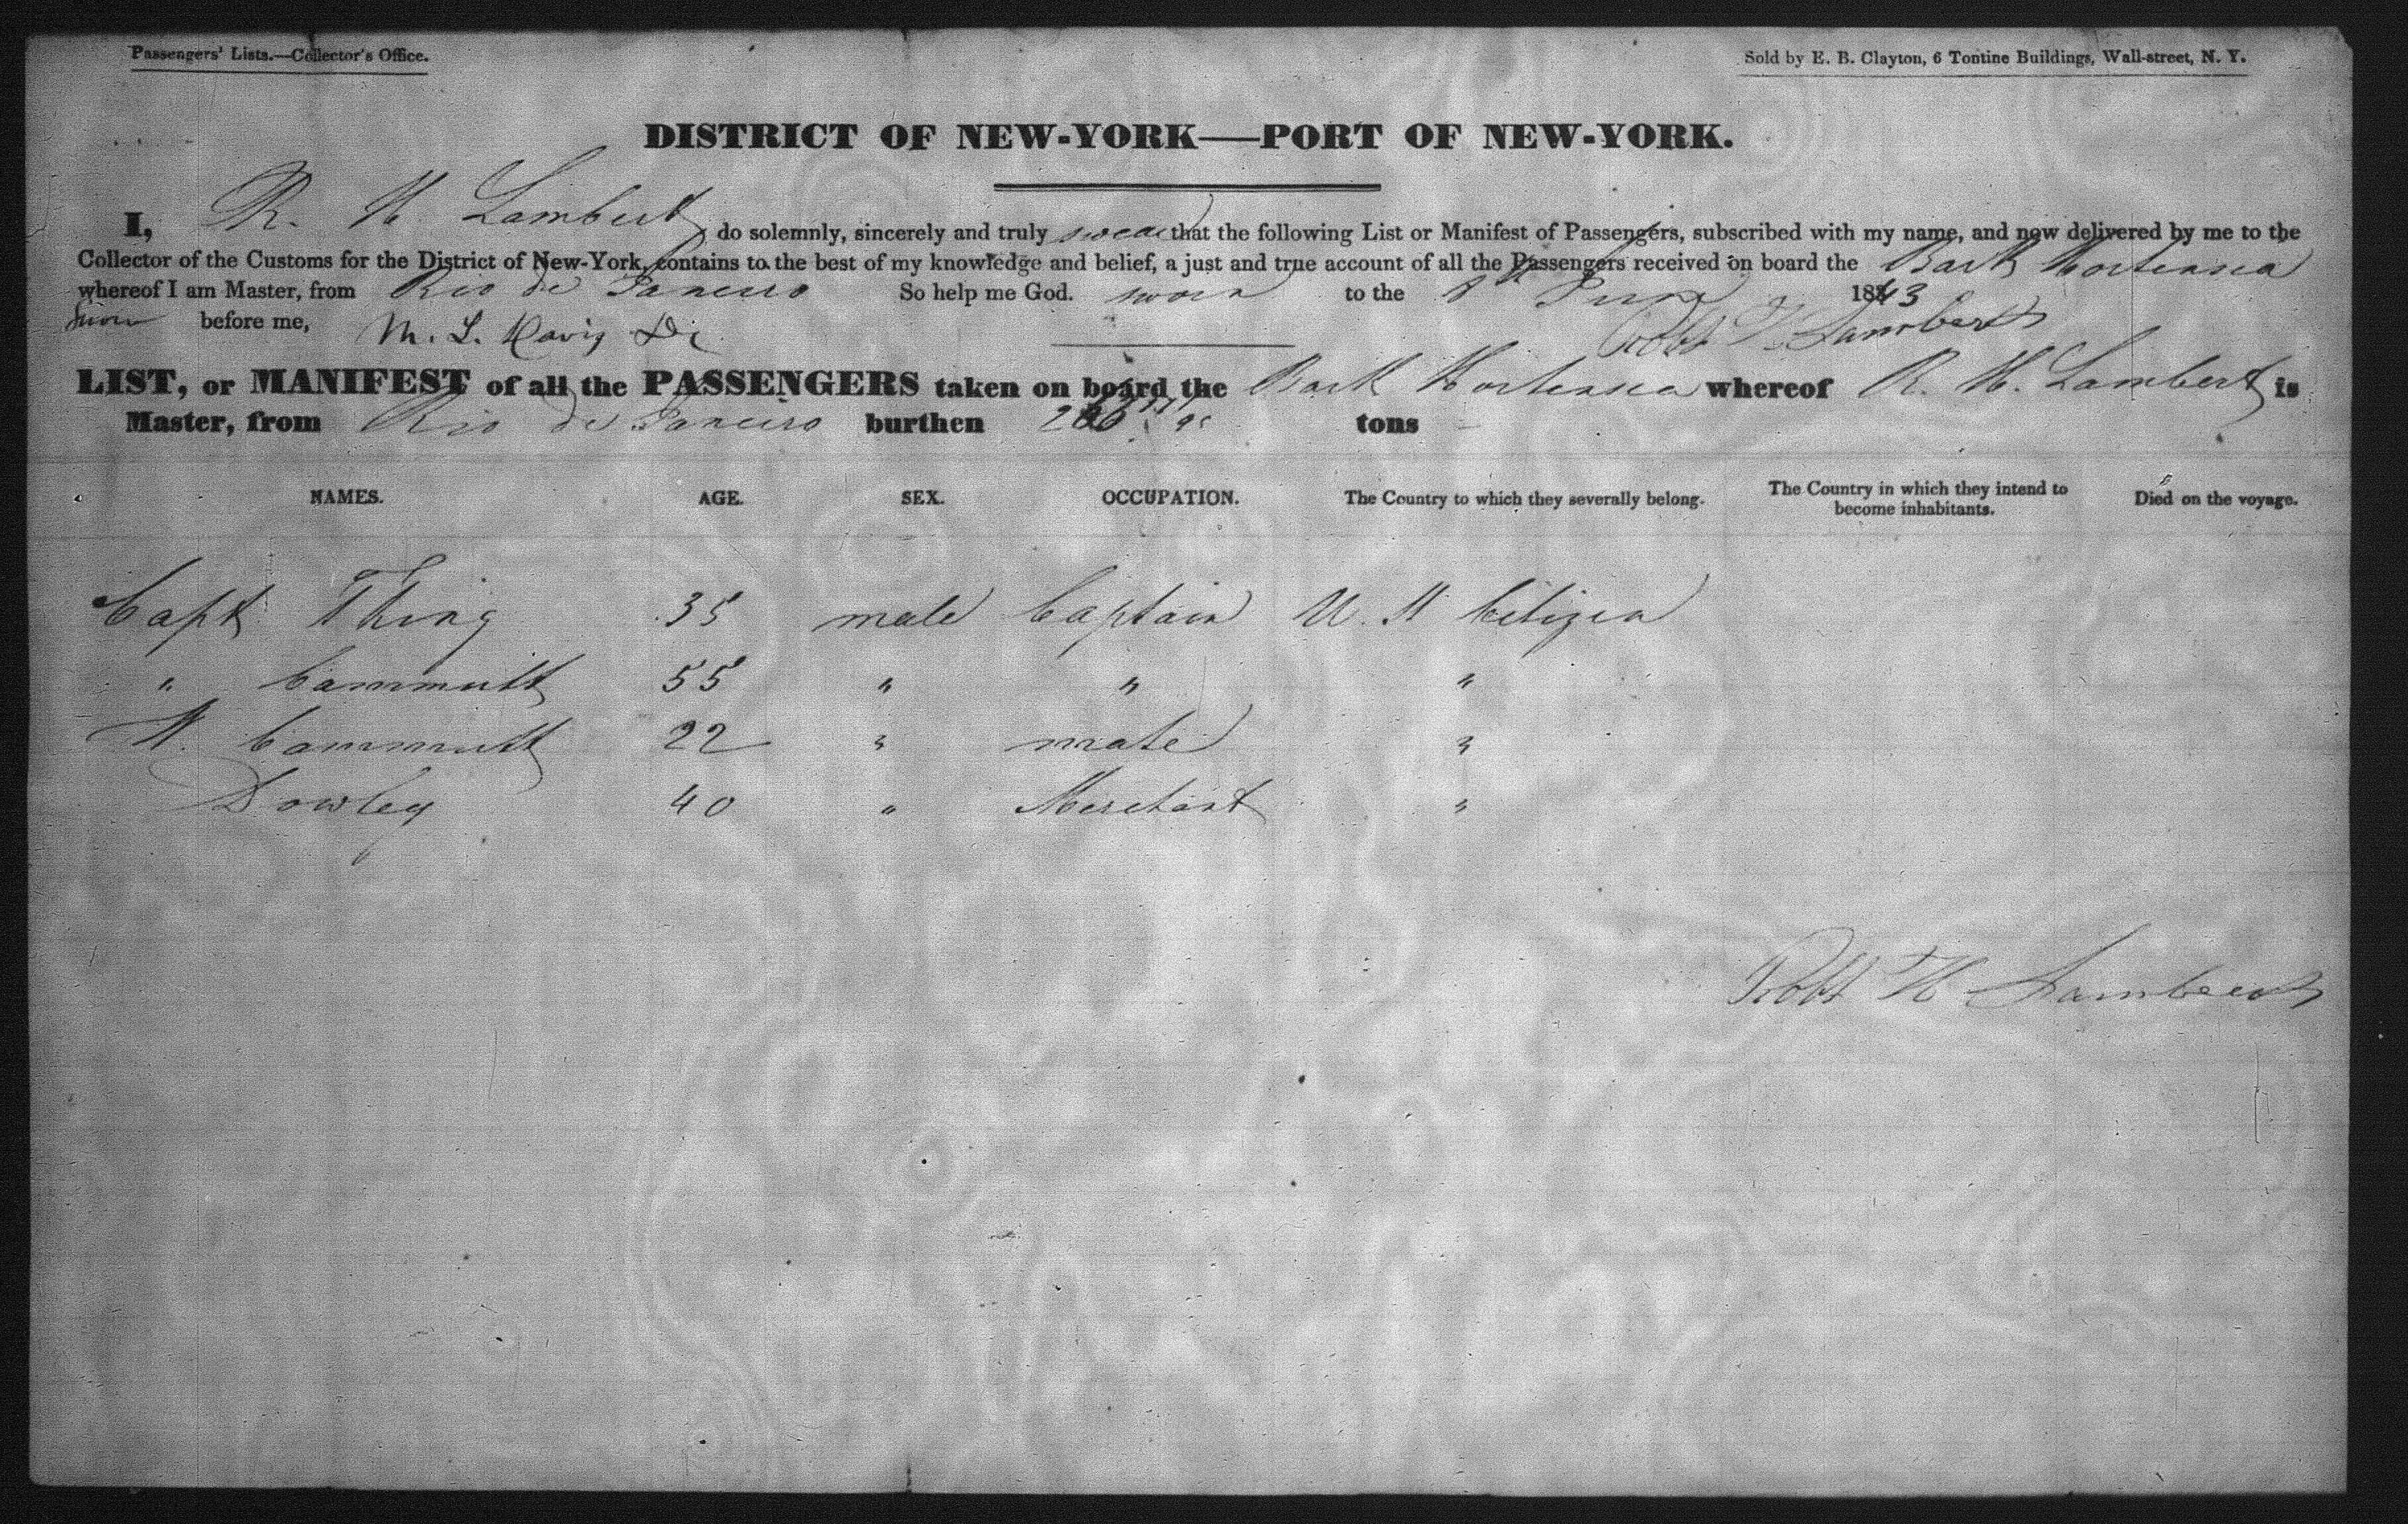 Passengers' Lists.—Collector's Office.
Sold by E. B. Clayton, 6 Tontine Buildings, Wall-street, N. Y.
DISTRICT OF NEW-YORK—PORT OF NEW-YORK.
I, R. H. Lambert do solemnly, sincerely and truly swear that the following List or Manifest of Passengers, subscribed with my name, and now delivered by me to the
Collector of the Customs for the District of New-York, contains to the best of my knowledge and belief, a just and true account of all the Passengers received on board the Bark Hortensia
whereof I am Master, from Rio de Janeiro So help me God. sworn to the 1843
Sworn before me, M. L. Davis Robt H Lambert
LIST, or MANIFEST of all the PASSENGERS taken on board the Bark Hortensia whereof R. H. Lambert is
Master, from Rio de Janeiro burthen tons
NAMES. AGE. SEX. OCCUPATION. The Country to which they severally belong. The Country in which they intend to become inhabitants. Died on the voyage.
Capt. Thing 35 male Captain U. S Citizen
" Cammett 55 " " "
Cammett 22 " mate "
Dowley 40 " Merchant "
Robt H Lambert